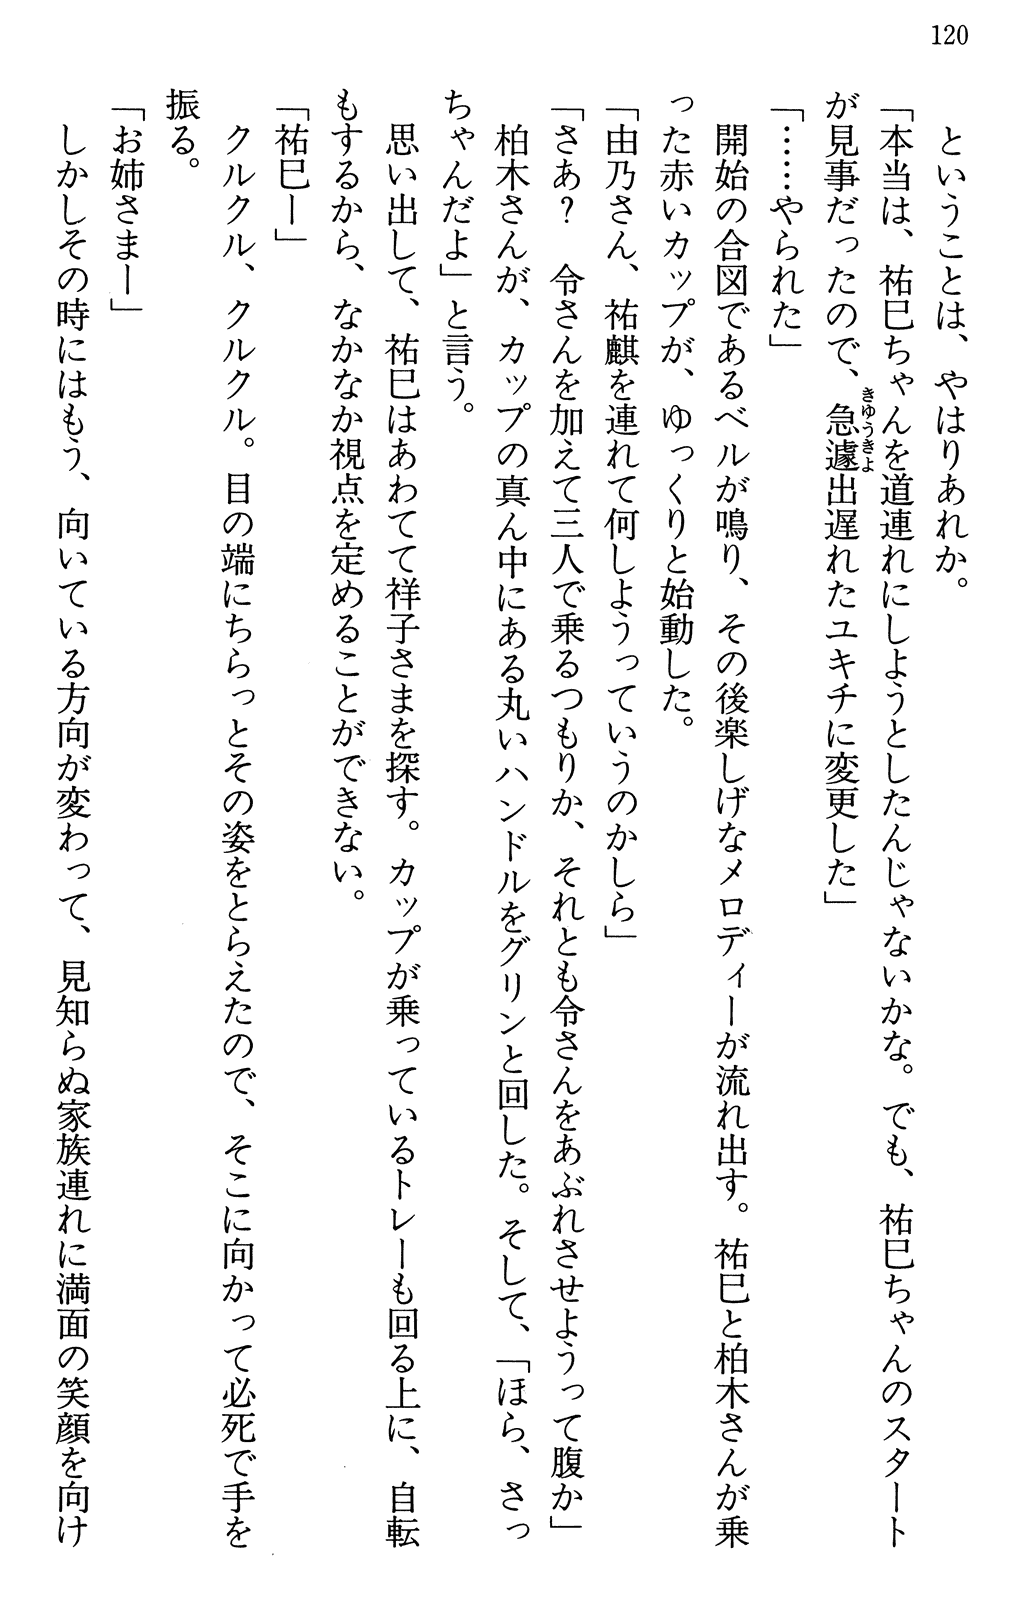 120
ということは、やはりあれか。
「本当は、祐巳ちゃんを道連れにしようとしたんじゃないかな。でも、祐巳ちゃんのスタート
が見事だったので、急遽出遅れたユキチに変更した」
きゆうきよ
「……やられた」
開始の合図であるベルが鳴り、その後楽しげなメロディーが流れ出す。祐巳と柏木さんが乗
った赤いカップが、ゆっくりと始動した。
「由乃さん、祐麒を連れて何しようっていうのかしら」
「さあ？　令さんを加えて三人で乗るつもりか、それとも令さんをあぶれさせようって腹か」
柏木さんが、カップの真ん中にある丸いハンドルをグリンと回した。そして、「ほら、さっ
ちゃんだよ」と言う。
思い出して、祐巳はあわてて祥子さまを探す。カップが乗っているトレーも回る上に、自転
もするから、なかなか視点を定めることができない。
「祐巳ー」
クルクル、クルクル。目の端にちらっとその姿をとらえたので、そこに向かって必死で手を
振る。
「お姉さまー」
しかしその時にはもう、向いている方向が変わって、見知らぬ家族連れに満面の笑顔を向け